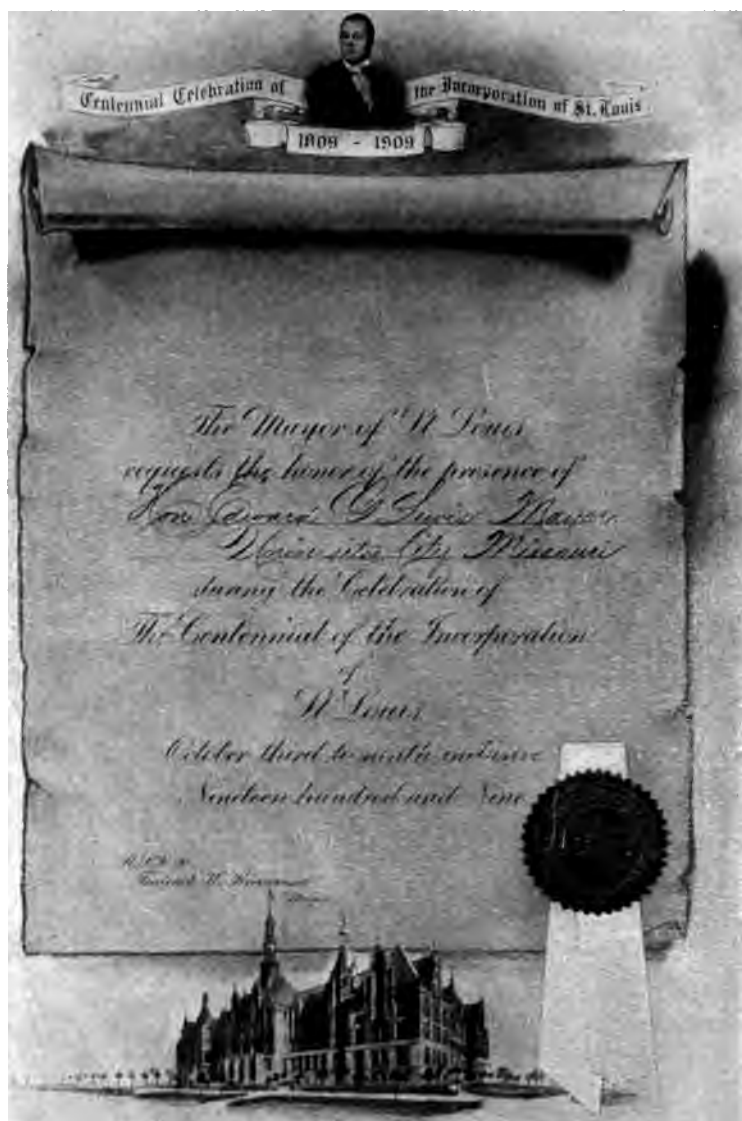 Centennial Celebration of the Incorporation of St. Louis
1809 - 1909
The Mayor of St Louis
requests the honor of the presence of
Hon Edward G Lewis Mayor
University City Missouri
during the Celebration of
The Centennial of the Incorporation
of
St Louis
October third to ninth inclusive
Nineteen hundred and Nine